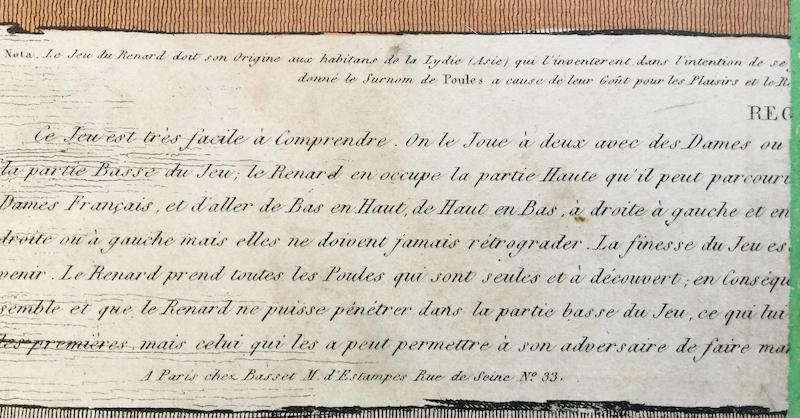 Nota. Le Jeu du Renard doit son Origine aux habitans de la Lydie (Asie) qui l'inventerent dans l'intention de se
donné le Surnom de Poules a cause de leur Goût pour les Plaisirs et le R
REG
Ce Jeu est très facile à Comprendre. On le Joue à deux avec des Dames ou
la partie Basse du Jeu; le Renard en occupe la partie Haute qu'il peut parcouri
Dames Français, et d'aller de Bas en Haut, de Haut en Bas, à droite à gauche et en
droite ou à gauche mais elles ne doivent jamais rétrograder. La finesse du Jeu es
venir. Le Renard prend toutes les Poules qui sont seules et à découvert; en Conséqu
semble et que le Renard ne puisse pénétrer dans la partie basse du Jeu, ce qui lui
les premières, mais celui qui les a peut permettre à son adversaire de faire mar
A Paris chez Basset M. d'Estampes Rue de Seine Nº 33.